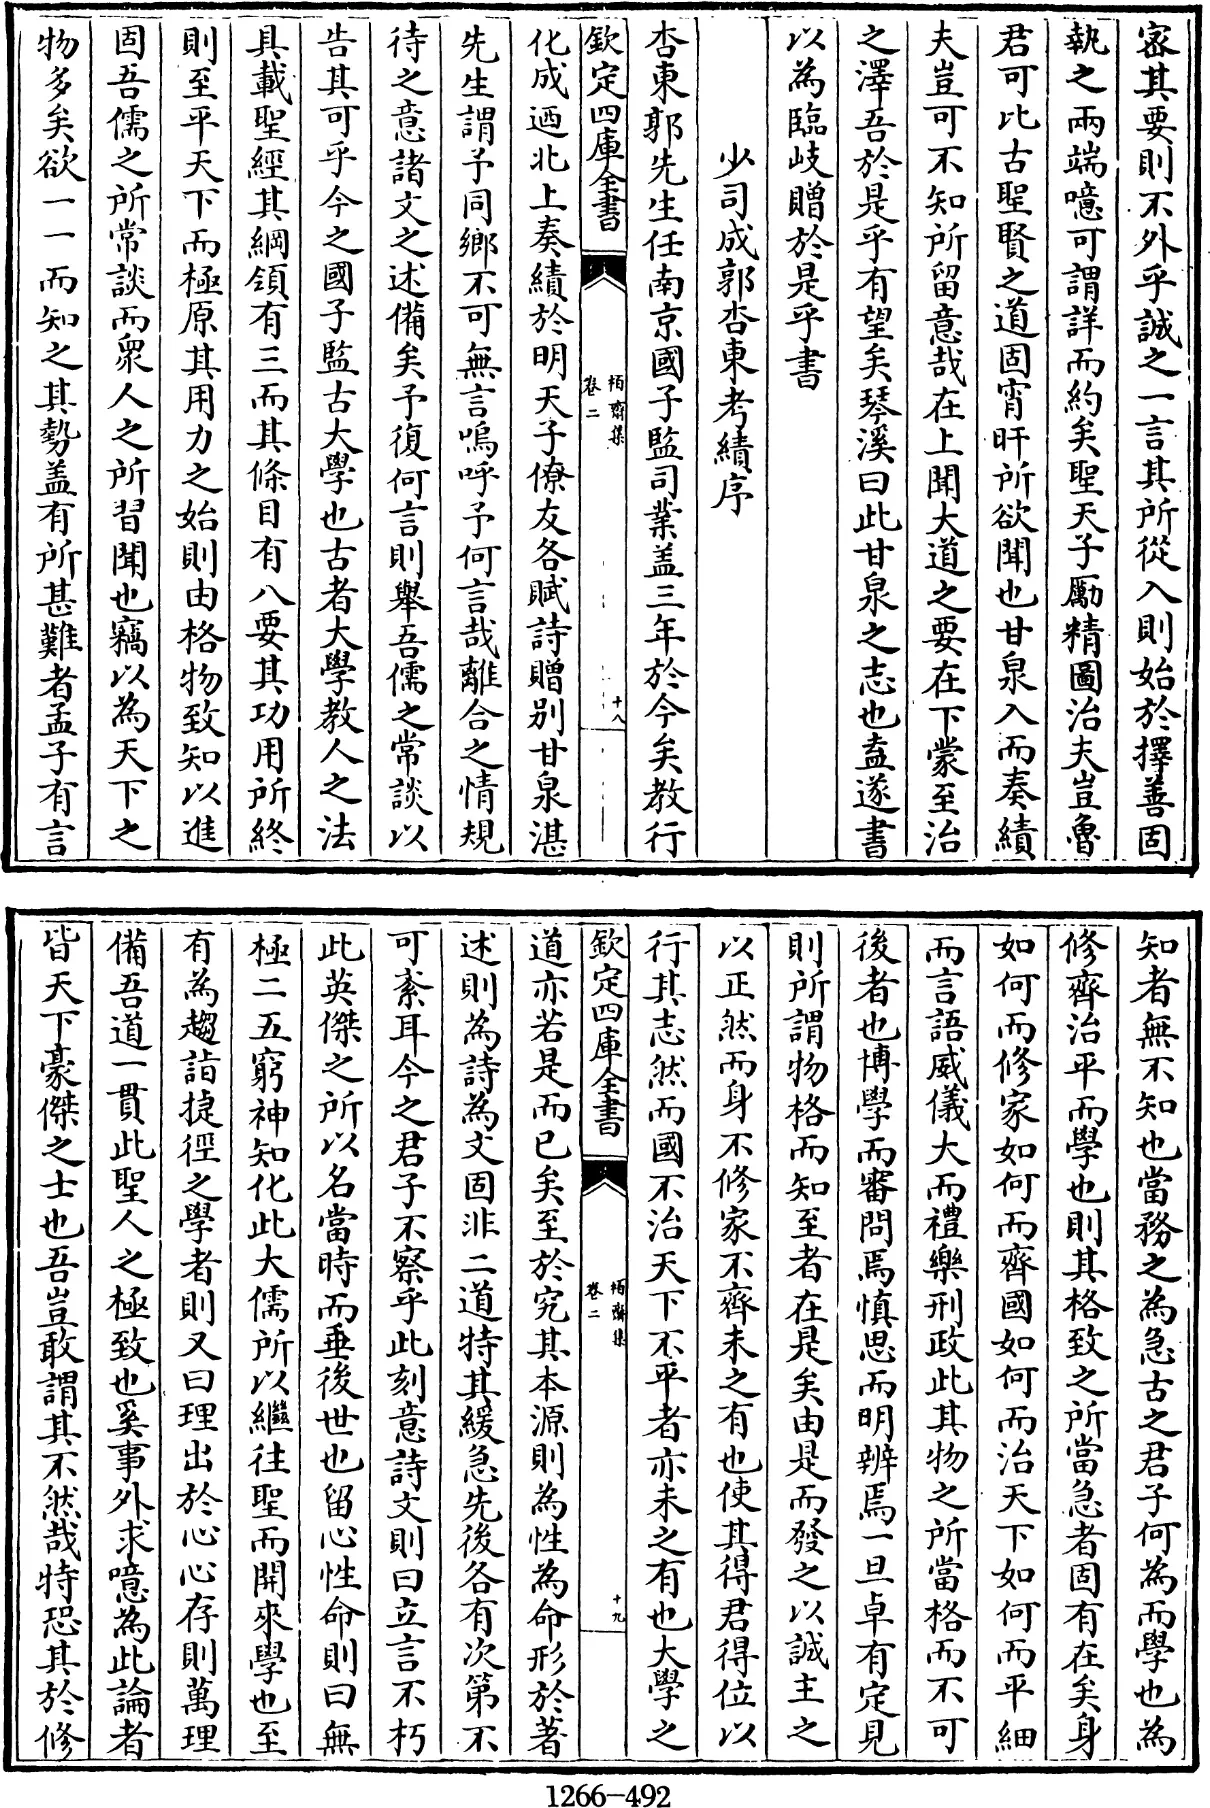 密其要則不外乎誠之一言其所從入則始於擇善固
執之兩端噫可謂詳而約矣聖天子勵精圖治夫豈魯
君可比古聖賢之道固宵旰所欲聞也甘泉入而奏績
夫豈可不知所留意哉在上聞大道之要在下蒙至治
之澤吾於是乎有望矣琴溪曰此甘泉之志也盍遂書
以為臨岐贈於是乎書
少司成郭杏東考績序
杏東郭先生任南京國子監司業盖三年於今矣教行
欽定四庫全書
栢齋集
卷二
十八
化成迺北上奏績於明天子僚友各賦詩贈别甘泉湛
先生謂予同鄉不可無言嗚呼予何言哉離合之情規
待之意諸文之述備矣予復何言則舉吾儒之常談以
告其可乎今之國子監古大學也古者大學教人之法
具載聖經其綱領有三而其條目有八要其功用所終
則至平天下而極原其用力之始則由格物致知以進
固吾儒之所常談而衆人之所習聞也竊以為天下之
物多矣欲一一而知之其勢盖有所甚難者孟子有言
知者無不知也當務之為急古之君子何為而學也為
修齊治平而學也則其格致之所當急者固有在矣身
如何而修家如何而齊國如何而治天下如何而平細
而言語威儀大而禮樂刑政此其物之所當格而不可
後者也博學而審問焉慎思而明辨焉一旦卓有定見
則所謂物格而知至者在是矣由是而發之以誠主之
以正然而身不修家不齊未之有也使其得君得位以
行其志然而國不治天下不平者亦未之有也大學之
欽定四庫全書
栢齋集
卷二
十九
道亦若是而已矣至於究其本源則為性為命形於著
述則為詩為文固非二道特其緩急先後各有次第不
可紊耳今之君子不察乎此刻意詩文則曰立言不朽
此英傑之所以名當時而垂後世也留心性命則曰無
極二五窮神知化此大儒所以繼往聖而開來學也至
有為趨詣捷徑之學者則又曰理出於心心存則萬理
備吾道一貫此聖人之極致也奚事外求噫為此論者
皆天下豪傑之士也吾豈敢謂其不然哉特恐其於修
1266-492